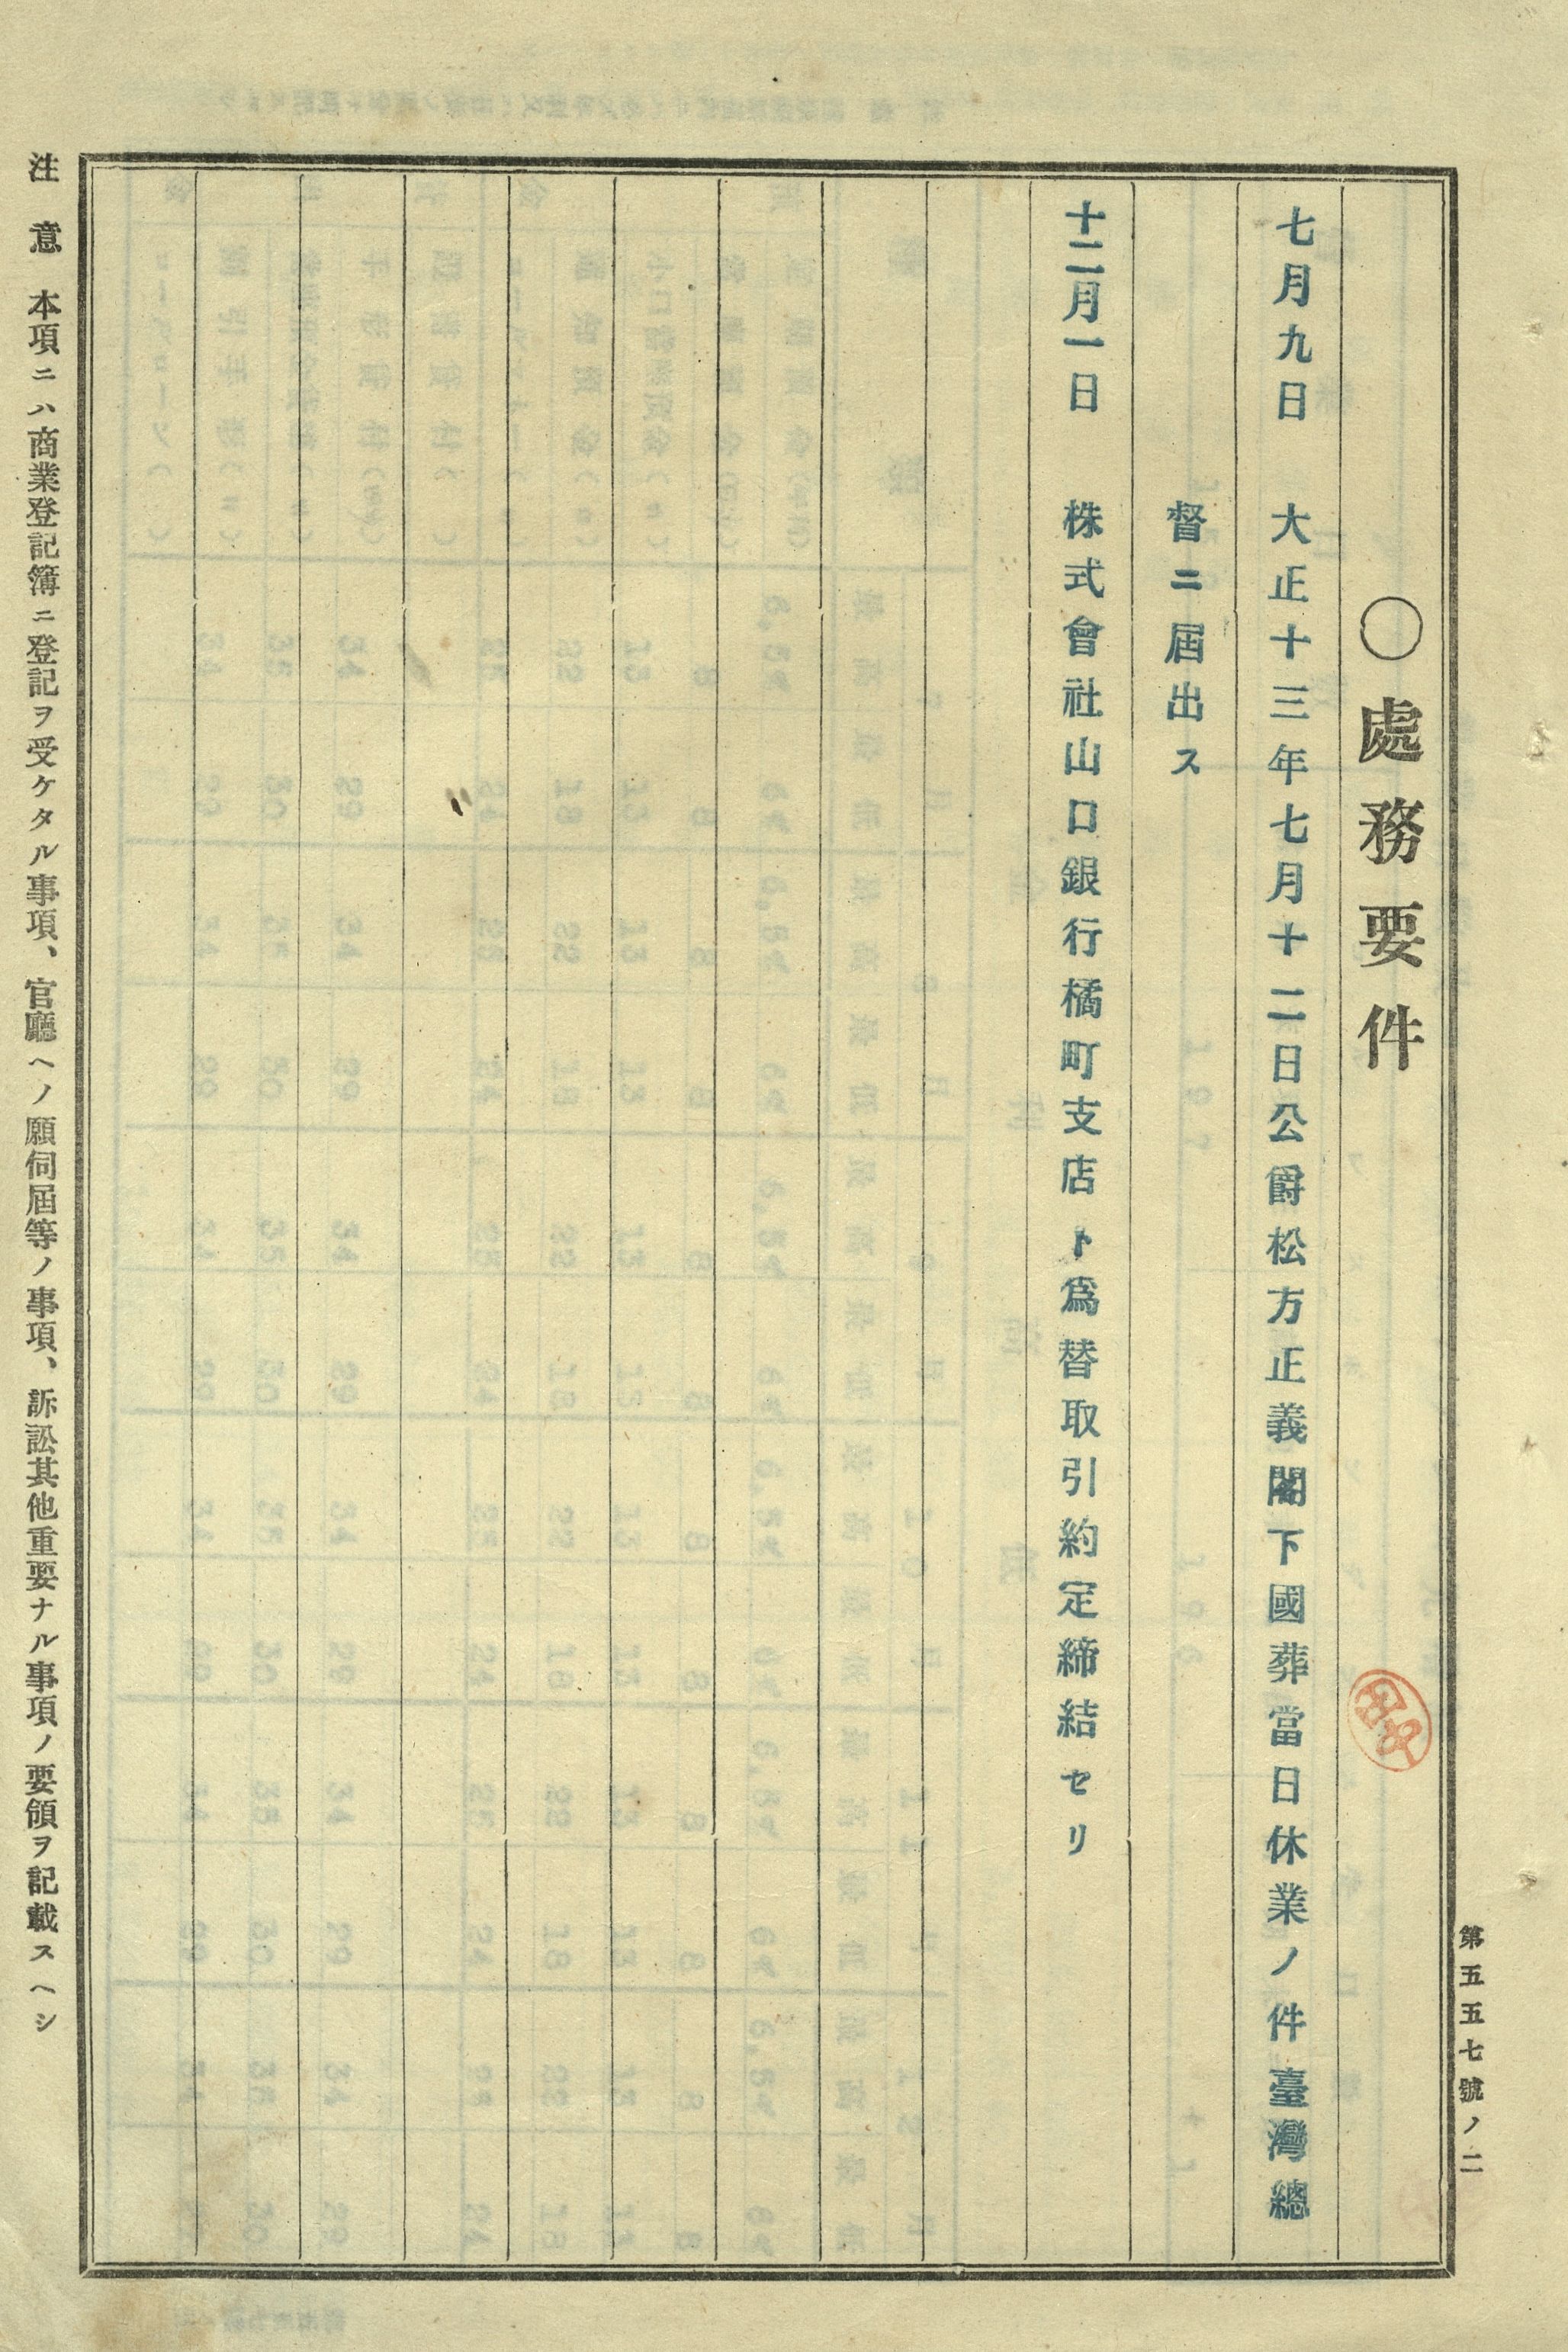 第五五七號ノ二
〇處務要件
七月九日　大正十三年七月十二日公爵松方正義閣下國葬當日休業ノ件臺灣總
督ニ屆出ス
十二月一日　株式會社山口銀行橘町支店ト爲替取引約定締結セリ
注意　本項ニハ商業登記簿ニ登記ヲ受ケタル事項、官廳ヘノ願伺屆等ノ事項、訴訟其他重要ナル事項ノ要領ヲ記載スヘシ